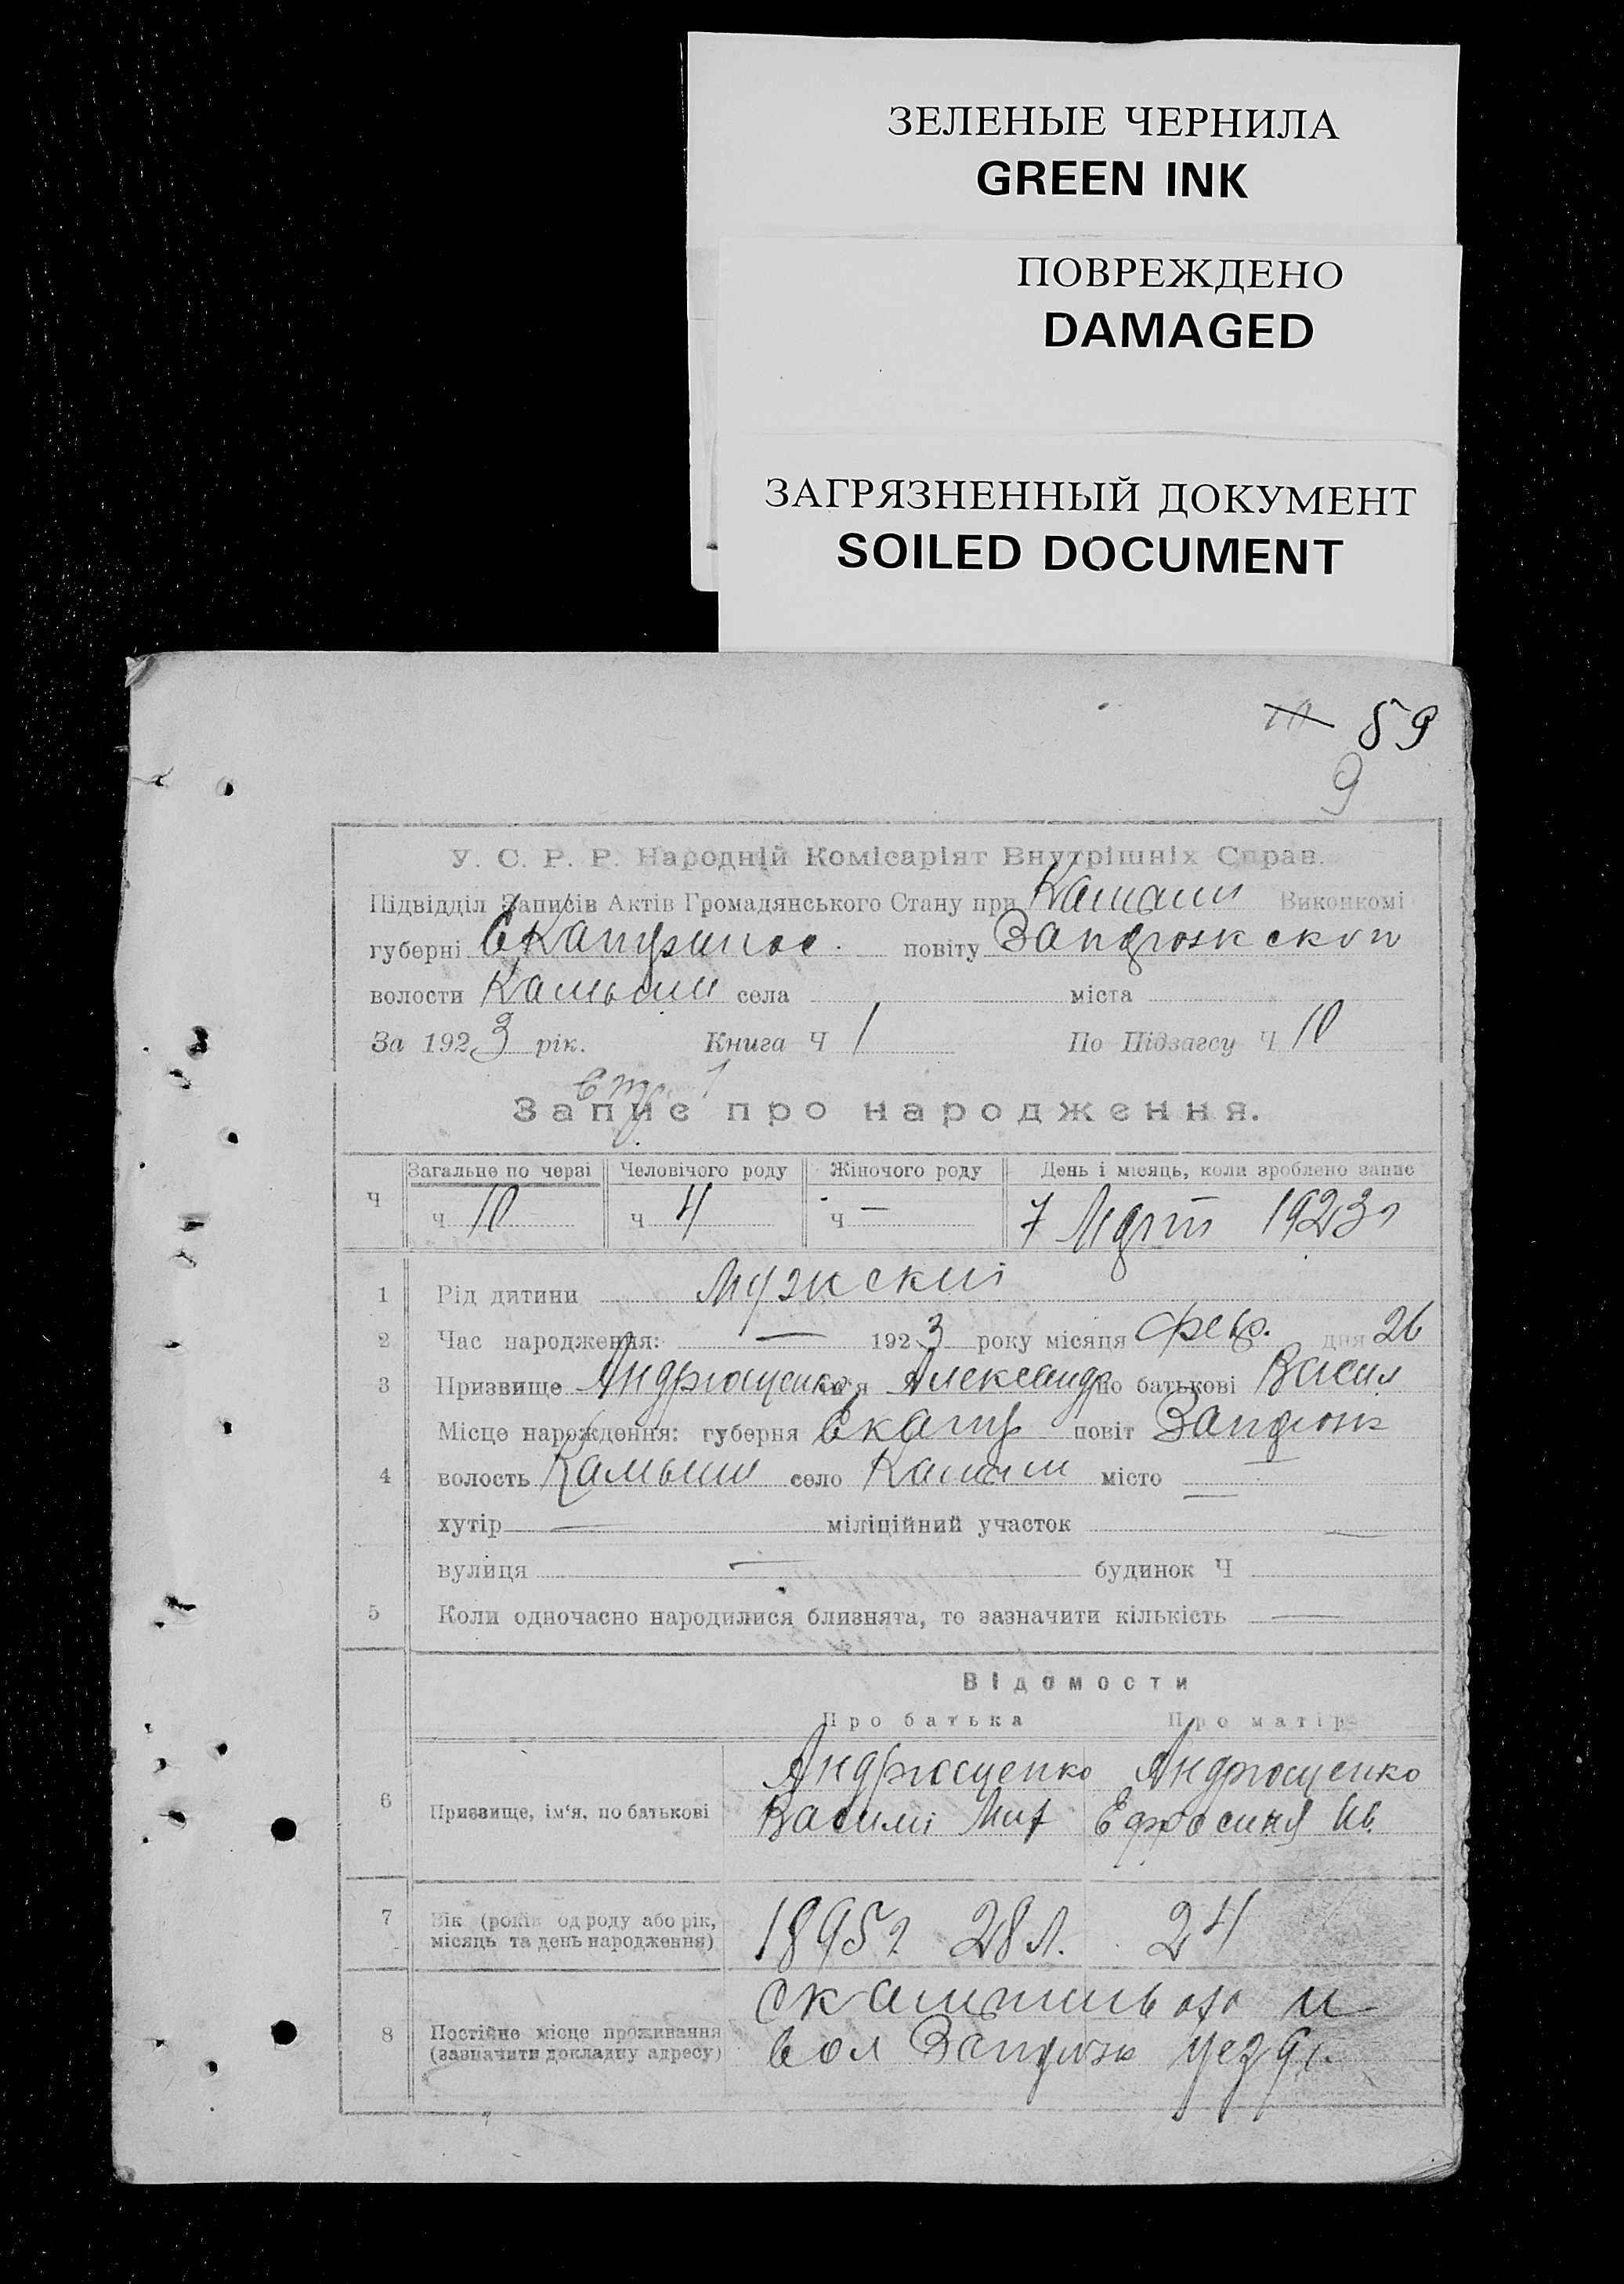 ЗЕЛЕНЫЕ ЧЕРНИЛА
GREEN INK
ПОВРЕЖДЕНО
DAMAGED
ЗАГРЯЗНЕННЫЙ ДОКУМЕНТ
SOILED DOCUMENT
59
9
У. С. Р. Р. Народній Комісаріят Внутрішніх Справ.
Підвідділ Записів Актів Громадянського Стану при Виконкомі
губерні повіту
волости Камыш села міста
За 1923 рік. Книга Ч 1 По Підзагсу Ч 10
Запис про народження.
Ч Загальне по черзі Человічого роду Жіночого роду День і місяць, коли зроблено запис
ч 10 ч 4 ч — 7 Март 1923 г
1 Рід дитини Мужский
2 Час народження: — 1923 року місяця Февр. дня 26
3 Призвище Андрющенко ім'я Александр по батькові Васил
Місце нарождення: губерня Екатр повіт Запорож
4 волость Камыш село Камыш місто —
хутір — міліційний участок —
вулиця — будинок Ч
5 Коли одночасно народилися близнята, то зазначити кількість —
Відомости
Про батька Про матір
Андрющенко Андрющенко
6 Призвище, ім'я, по батькові Василий Мит Ефросиния Ив.
7 Вік (років од роду або рік,
місяць та день народження) 1895 г. 28 л. 24
8 Постійне місце проживання
(зазначити докладну адресу) вол Запорож уезда